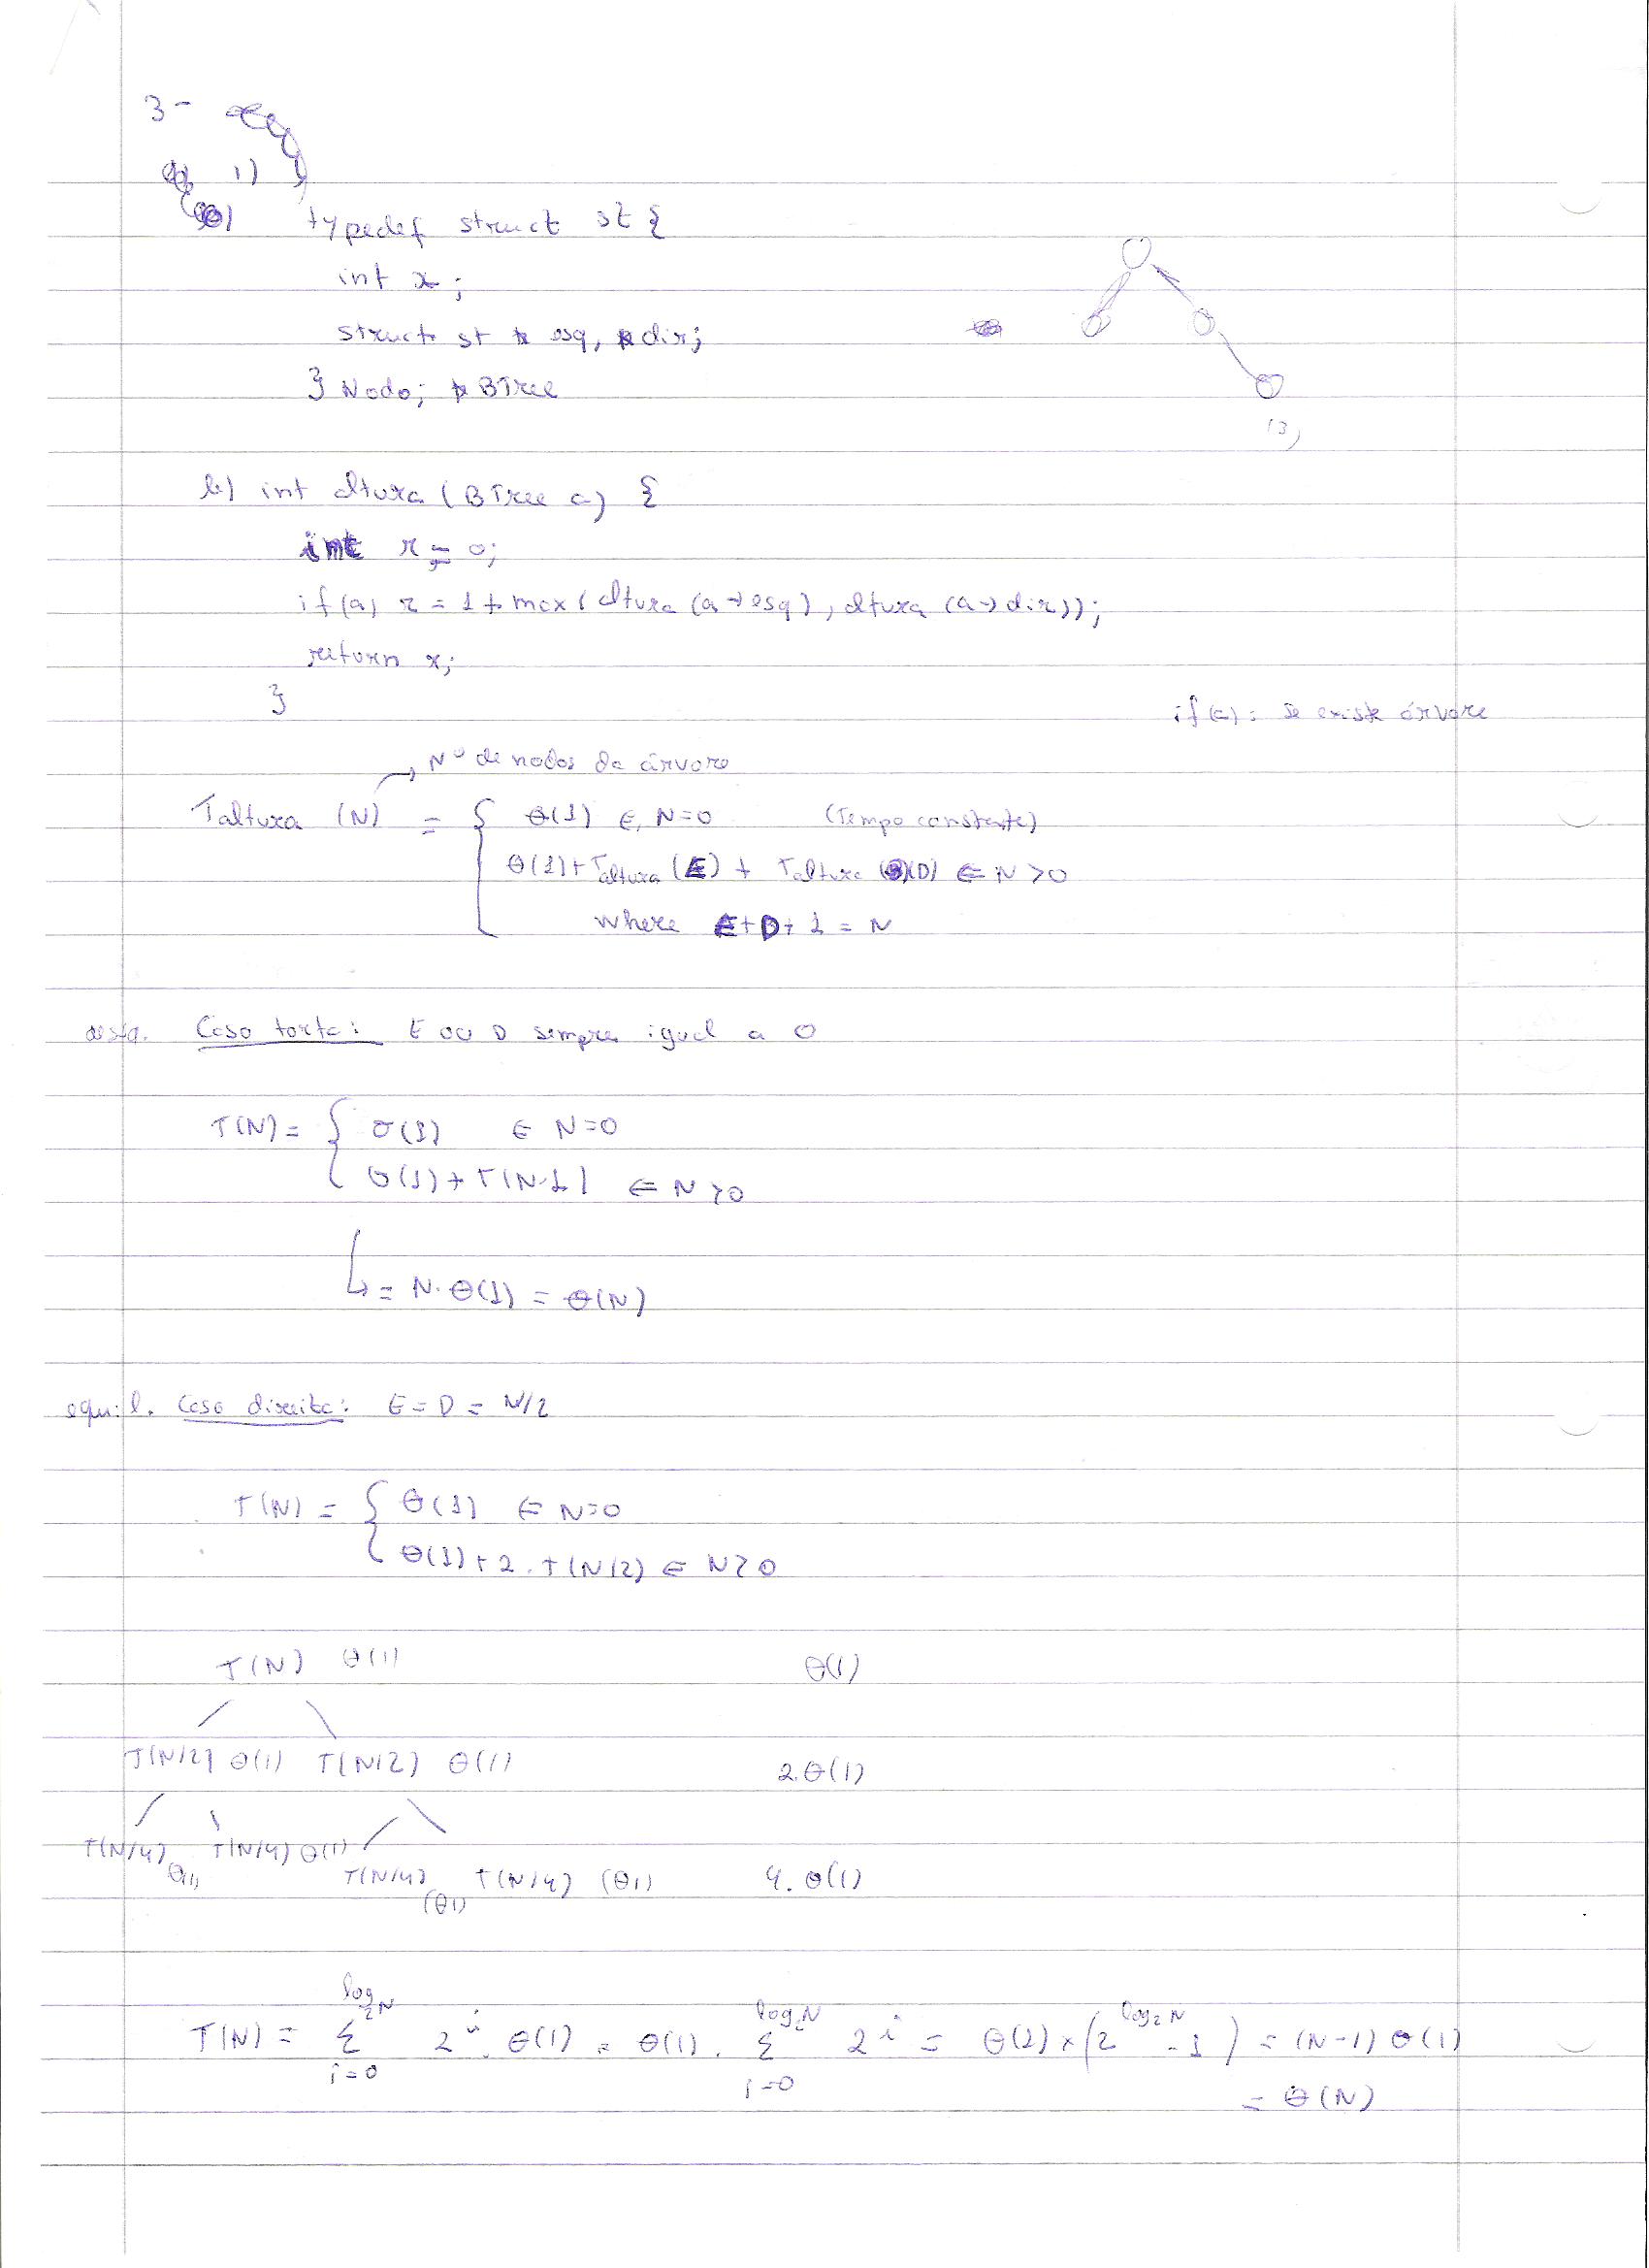 3 -
1)
typedef struct st {
int x;
struct st * esq, * dir;
} Nodo; * BTree
(3)
b) int altura (BTree a) {
int r = 0;
if (a) r = 1 + max (altura (a → esq), altura (a → dir));
return r;
}
if (a) = se existe árvore
→ Nº de nodos da árvore
Taltura (N) = { Θ(1) ⇐ N=0 (Tempo constante)
Θ(1) + Taltura (E) + Taltura (D) ⇐ N > 0
where E + D + 1 = N
Caso torta: E ou D sempre igual a 0
T(N) = { Θ(1) ⇐ N=0
Θ(1) + T(N-1) ⇐ N > 0
↳ = N. Θ(1) = Θ(N)
equil. Caso direita: E = D = N/2
T(N) = { Θ(1) ⇐ N=0
Θ(1) + 2 . T(N/2) ⇐ N > 0
T(N) Θ(1) Θ(1)
T(N/2) Θ(1) T(N/2) Θ(1) 2.Θ(1)
T(N/4) Θ(1) T(N/4) Θ(1) T(N/4) (Θ1) T(N/4) (Θ1) 4. Θ(1)
T(N) = Σ_{i=0}^{log₂N} 2^i . Θ(1) = Θ(1) . Σ_{i=0}^{log₂N} 2^i = Θ(1) × (2^{log₂N} - 1) = (N-1) Θ(1)
= Θ(N)